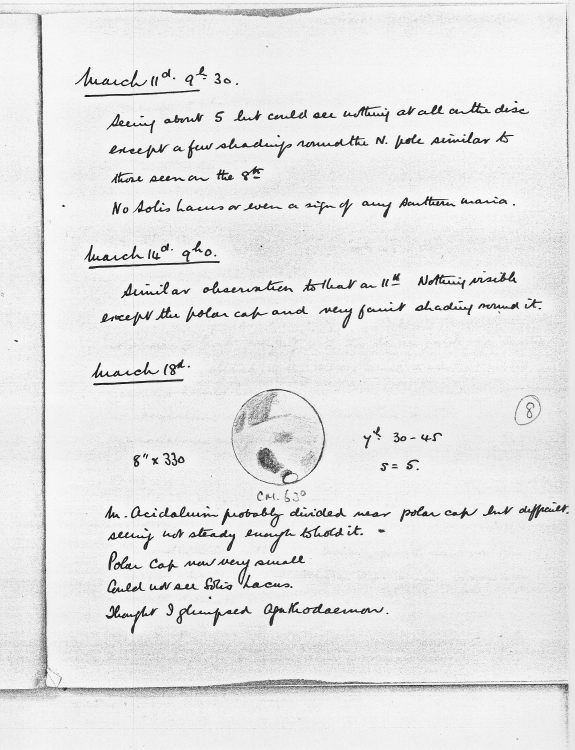 March 11d. 9h 30.
Seeing about 5 but could see nothing at all on the disc
except a few shadings round the N. pole similar to
those seen on the 8th
No Solis Lacus or even a sign of any Southern maria.
March 14d. 9h 0.
Similar observation to that on 11th Nothing visible
except the polar cap and very faint shading round it.
March 18d.
8
7h 30-45
8" x 330
S = 5.
CM. 63°
M. Acidalium probably divided near polar cap but difficult.
seeing not steady enough to hold it. -
Polar Cap now very small
Could not see Solis Lacus.
Thought I glimpsed Agathodaemon.